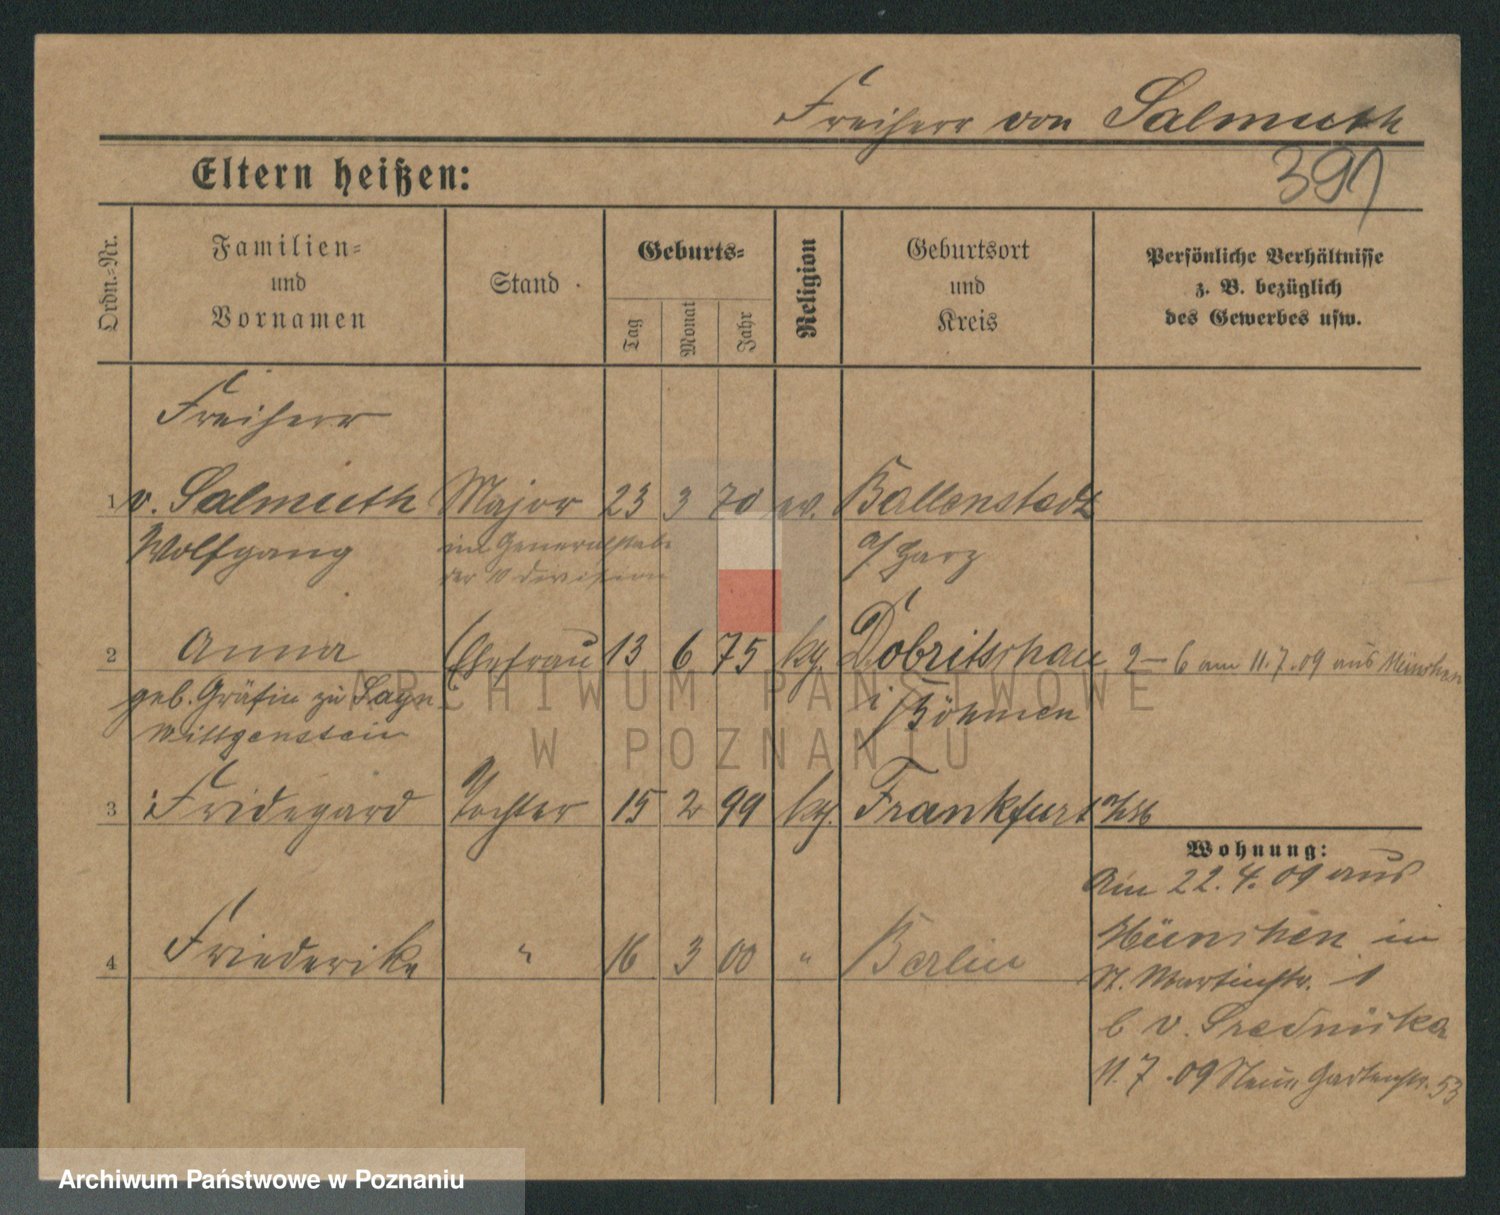 Freiherr von Salmuth
391
Eltern heißen:
Ordn.-Nr.
Familien-
und
Vornamen
Stand
Geburts-
Tag
Monat
Jahr
Religion
Geburtsort
und
Kreis
Persönliche Verhältnisse
z. B. bezüglich
des Gewerbes usw.
Freiherr
1 v. Salmuth Major 23 3 70 ev. Ballenstedt
Wolfgang im Generalstabe a/Harz
der 10 Division
2 Anna Ehefrau 13 6 75 kg. Dobritschau 2–6 am 11.7.09 aus München
geb. Gräfin zu Sayn i/Böhmen
Wittgenstein
3 Fridegard Tochter 15 2 99 kg. Frankfurt
4 Friederike " 16 3 00 " Berlin
Wohnung:
Am 22.4.09 aus
München in
St. Martinstr. 1
b v.
11.7.09 Neue Gartenstr. 53
ARCHIWUM PAŃSTWOWE
W POZNANIU
Archiwum Państwowe w Poznaniu